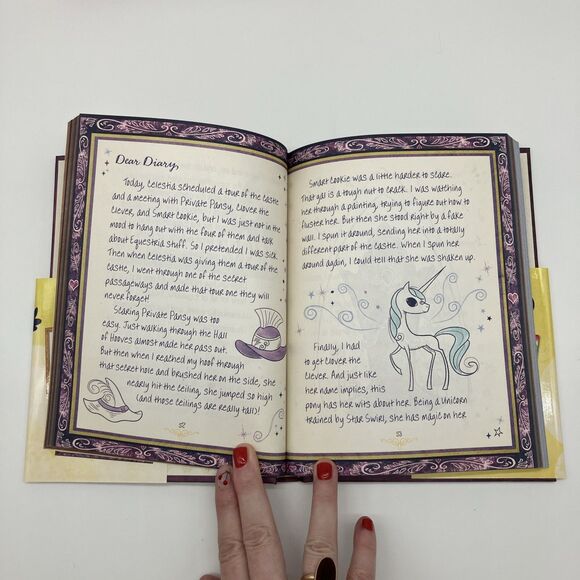 Dear Diary,
Today, Celestia scheduled a tour of the castle
and a meeting with Private Pansy, Clover the
Clever, and Smart Cookie, but I was just not in the
mood to hang out with the four of them and talk
about Equestria stuff. So I pretended I was sick.
Then when Celestia was giving them a tour of the
castle, I went through one of the secret
passageways and made that tour one they will
never forget!
Scaring Private Pansy was too
easy. Just walking through the Hall
of Hooves almost made her pass out.
But then when I reached my hoof through
that secret hole and brushed her on the side, she
nearly hit the ceiling, she jumped so high
(and those ceilings are really tall)!
52
Smart Cookie was a little harder to scare.
That gal is a tough nut to crack. I was watching
her through a painting, trying to figure out how to
fluster her. But then she stood right by a fake
wall. I spun it around, sending her into a totally
different part of the castle. When I spun her
around again, I could tell that she was shaken up.
Finally, I had
to get Clover the
Clever. And just like
her name implies, this
pony has her wits about her. Being a Unicorn
trained by Star Swirl, she has magic on her
53